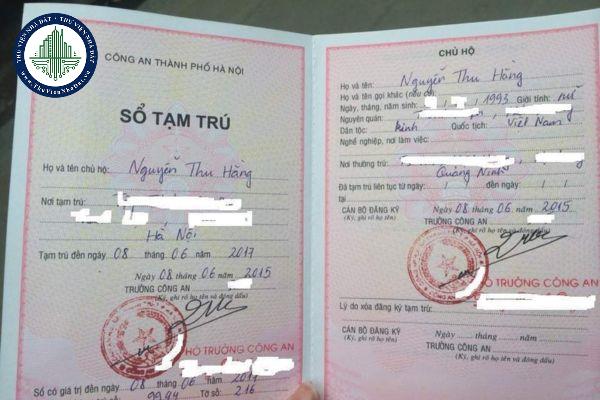 THƯ VIỆN NHÀ ĐẤT
www.ThuVienNhaDat.vn
CÔNG AN THÀNH PHỐ HÀ NỘI
SỔ TẠM TRÚ
Họ và tên chủ hộ: Nguyễn Thu Hằng
Nơi tạm trú:
Hà Nội
Tạm trú đến ngày 08 tháng 06 năm 2017
Ngày 08 tháng 06 năm 2015
TRƯỞNG CÔNG AN
(Ký, ghi rõ họ tên và đóng dấu)
PHÓ TRƯỞNG CÔNG AN
Sổ có giá trị đến ngày 08 tháng 06 năm
Tờ số: 216
CHỦ HỘ
Họ và tên: Nguyễn Thu Hằng
Họ và tên gọi khác (nếu có):
Ngày, tháng, năm sinh: 1993 Giới tính: nữ
Nguyên quán:
Dân tộc: kinh Quốc tịch: Việt Nam
Nghề nghiệp, nơi làm việc:
Nơi thường trú:
Quảng Ninh
Đã tạm trú liên tục từ ngày / / đến ngày / /
tại
Ngày 08 tháng 06 năm 2015
CÁN BỘ ĐĂNG KÝ TRƯỞNG CÔNG AN
(Ký, ghi rõ họ tên) (Ký, ghi rõ họ tên và đóng dấu)
PHÓ TRƯỞNG CÔNG AN
Lý do xóa đăng ký tạm trú:
Ngày tháng năm
CÁN BỘ ĐĂNG KÝ TRƯỞNG CÔNG AN
(Ký, ghi rõ họ tên) (Ký, ghi rõ họ tên và đóng dấu)